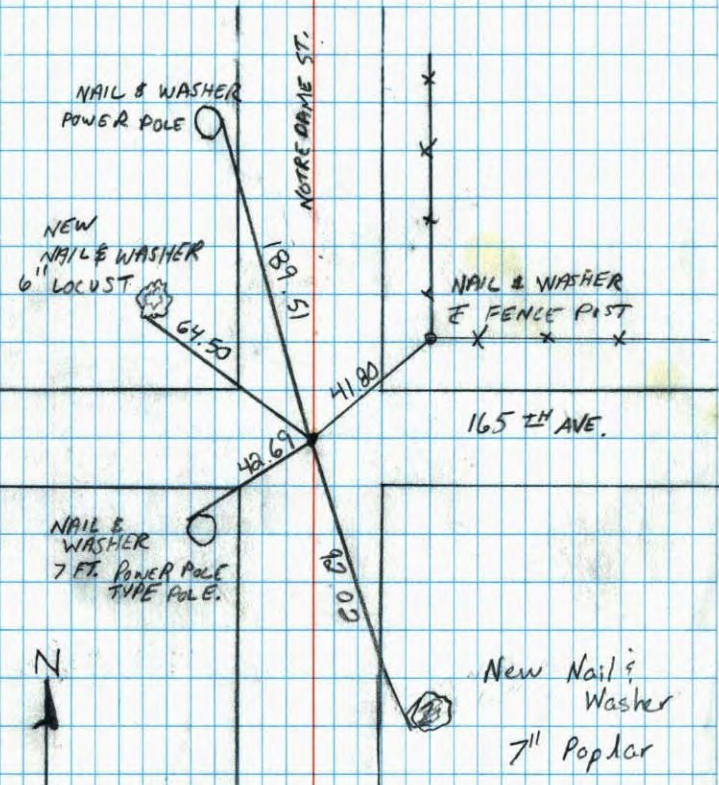 NOTRE DAME ST.
NAIL & WASHER
POWER POLE
189.51
NEW
NAIL & WASHER
6" LOCUST
64.50
NAIL & WASHER
E FENCE POST
41.80
165 TH AVE.
42.69
NAIL &
WASHER
7 FT. POWER POLE
TYPE POLE.
92.02
N
New Nail &
Washer
7" Poplar